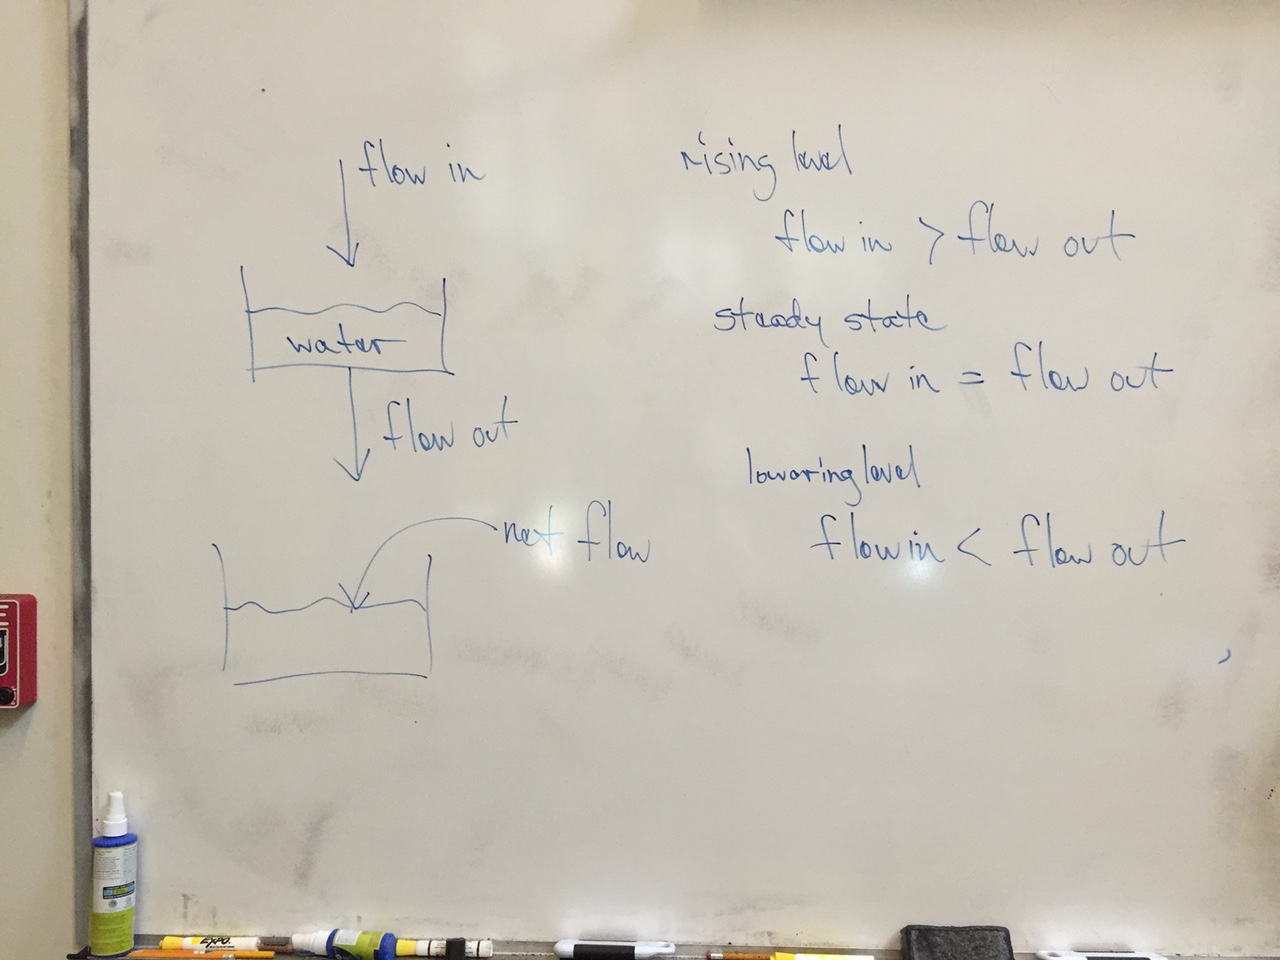 flow in
water
flow out
net flow
rising level
flow in > flow out
steady state
flow in = flow out
lowering level
flow in < flow out
EXPO